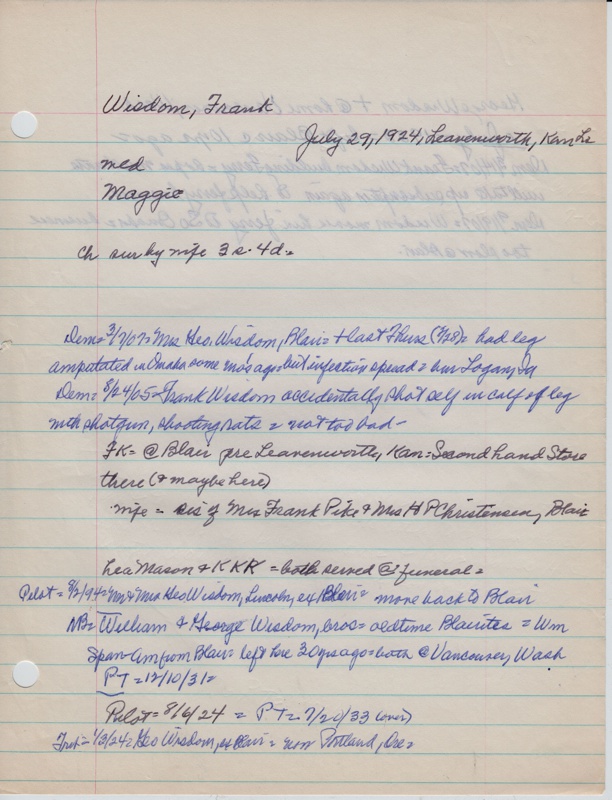 Wisdom, Frank
July 29, 1924, Leavenworth, Kan
med
Maggie
ch sur by wife 3 s. 4 d.=
Dem= 3/7/07= Mrs Geo. Wisdom, Blair= + last Thurs (2/28)= had leg
amputated in Omaha some mos ago= but infection spread = bur Logan, Ia
Dem= 8/24/05= Frank Wisdom accidentally shot self in calf of leg
with shotgun, shooting rats = not too bad-
FK= @ Blair pre Leavenworth, Kan= Second hand Store
there (& maybe here)
wife = sis of Mrs Frank Pike & Mrs H P Christensen, Blair
Lea Mason & KKK = both served @ funeral=
Pilot= 8/2/94= Mr & Mrs Geo Wisdom, Lincoln, ex Blair= move back to Blair
NB= William & George Wisdom, bros= oldtime Blairites = Wm
Span-Am from Blair= left here 30 yrs ago= both @ Vancouver, Wash
PT = 12/10/31=
Pilot= 8/6/24 = PT= 7/20/33 (over)
1/3/24= Geo Wisdom, ex Blair = now Portland, Ore=